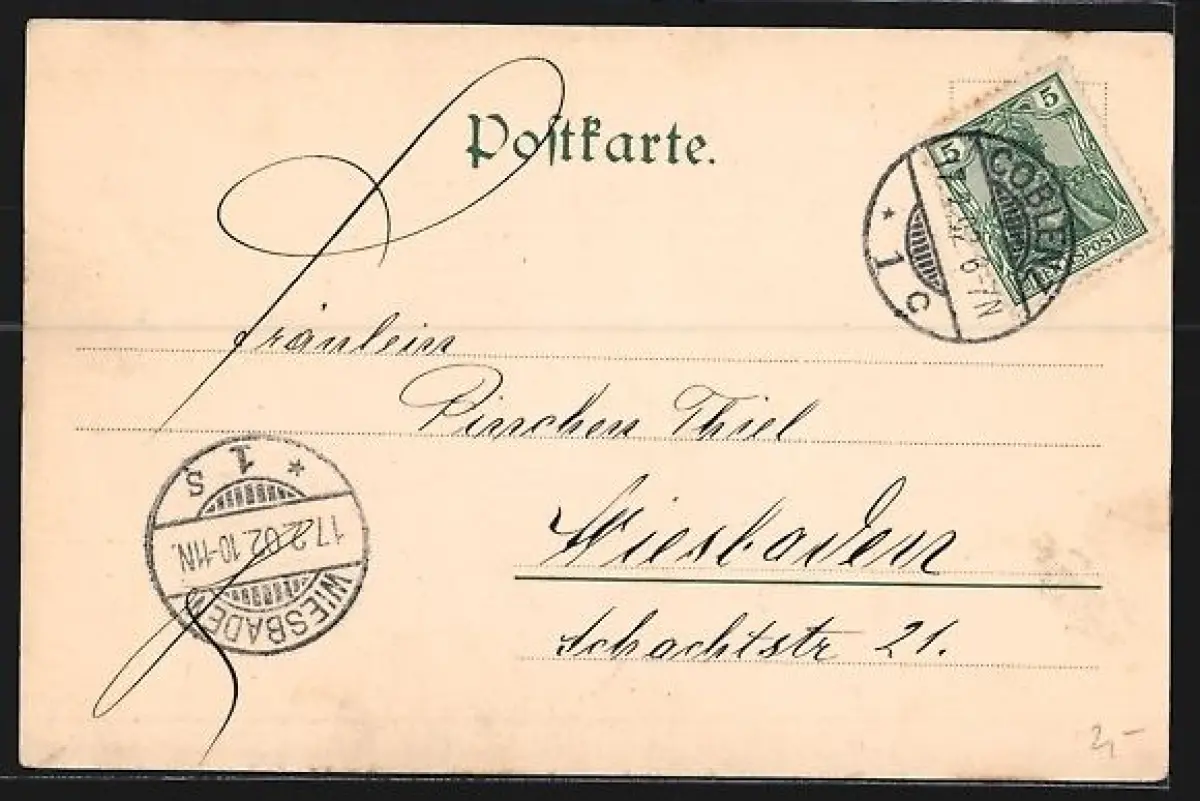 Postkarte.
5
5
REICHSPOST
COBLENZ
17.2.02 6-7N
* 1 c
Fräulein
Pinchen Thiel
Wiesbaden
Schachtstr 21.
WIESBADEN
17.2.02. 10-11N.
* 1 s
2,-